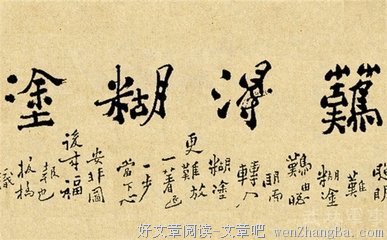 難得糊塗
聰明
難
糊塗
難由聰
明而
轉入
糊塗
更難放
一著退
一步
當下心
安非圖
後來福
報也
板橋
識
好文章阅读-文章吧 wenZhangBa.com